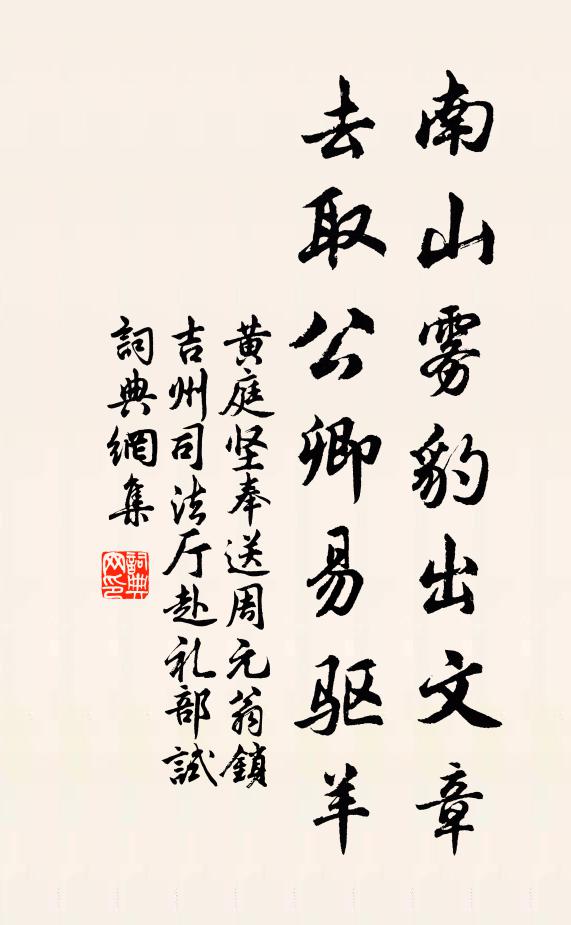 南山雾豹出文章
去取公卿易驱羊
黄庭坚奉送周元翁鎖
吉州司法厅赴礼部試
詞典網集
詞典
网印